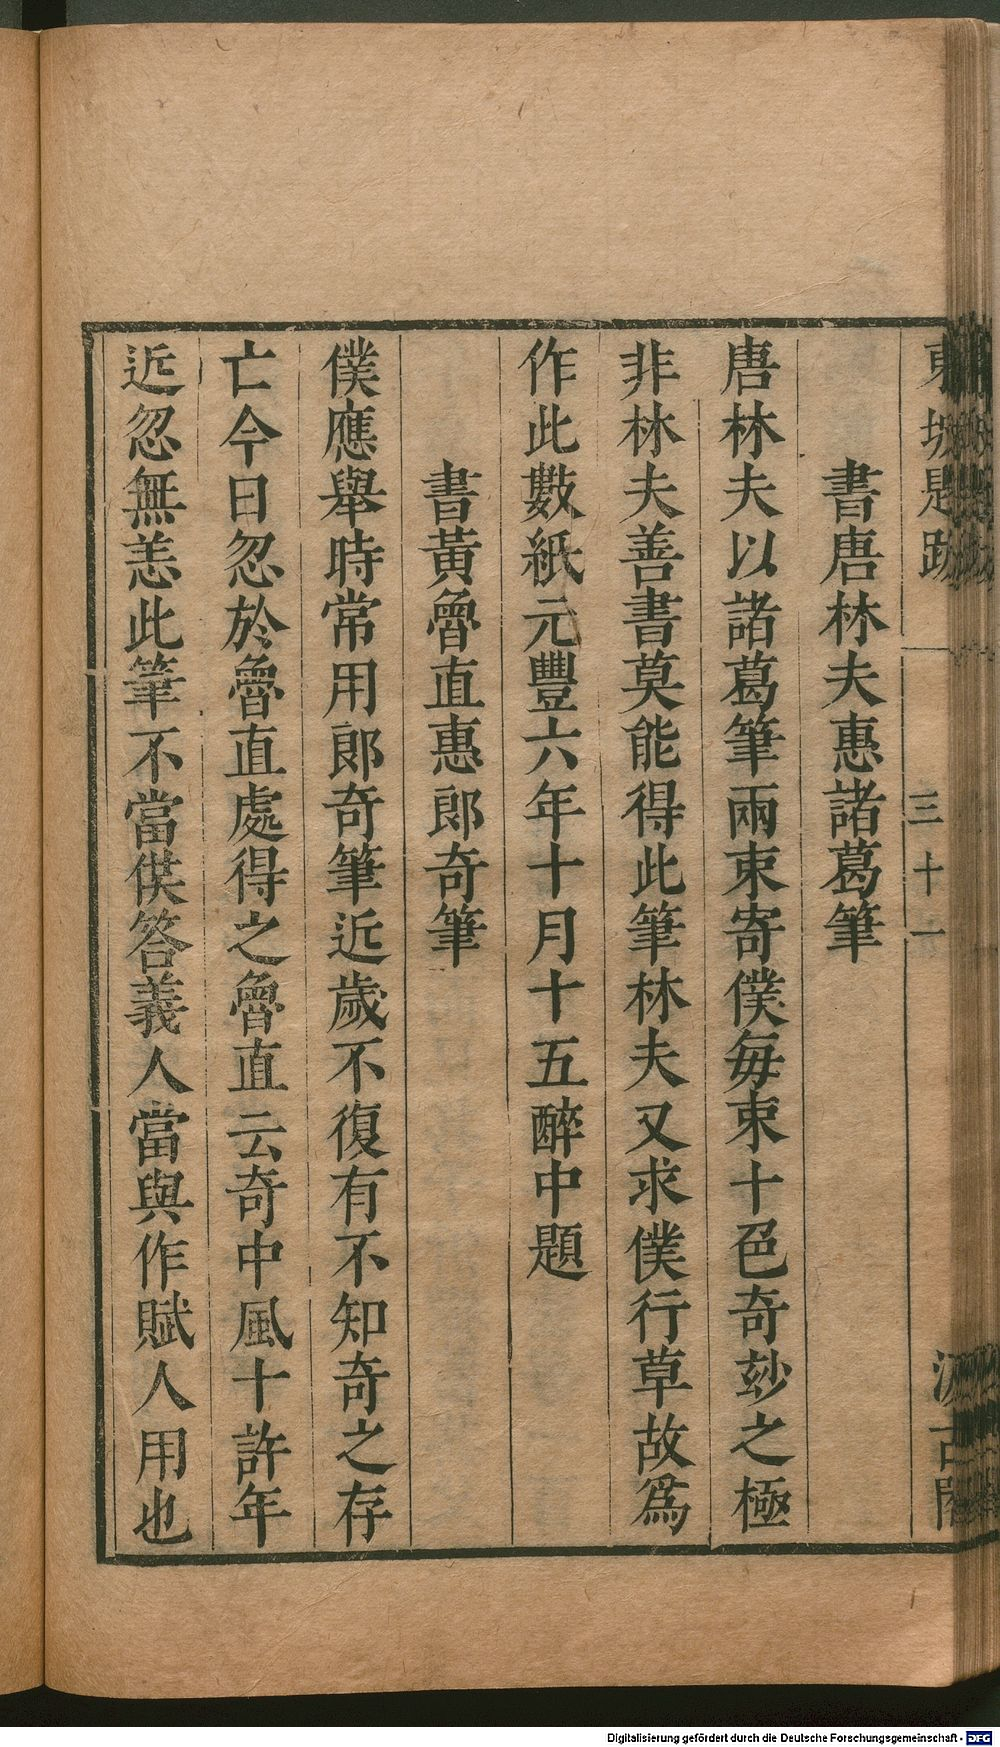 東坡題跋 三十一 汲古閣
書唐林夫惠諸葛筆
唐林夫以諸葛筆兩束寄僕每束十色奇玅之極
非林夫善書莫能得此筆林夫又求僕行草故爲
作此數紙元豐六年十月十五醉中題
書黃魯直惠郎奇筆
僕應舉時常用郎奇筆近歲不復有不知奇之存
亡今日忽於魯直處得之魯直云奇中風十許年
近忽無恙此筆不當供答義人當與作賦人用也
Digitalisierung gefördert durch die Deutsche Forschungsgemeinschaft - DFG